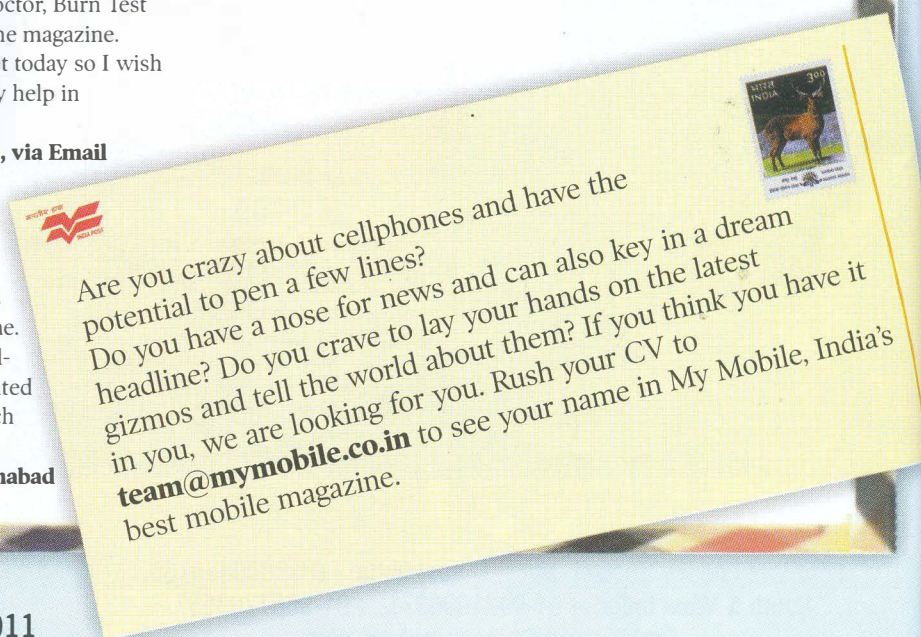 octor, Burn Test
ne magazine.
t today so I wish
y help in
, via Email
ne.
l-
ted
ch
nabad
011
INDIA 300
INDIA POST
Are you crazy about cellphones and have the
potential to pen a few lines?
Do you have a nose for news and can also key in a dream
headline? Do you crave to lay your hands on the latest
gizmos and tell the world about them? If you think you have it
in you, we are looking for you. Rush your CV to
team@mymobile.co.in to see your name in My Mobile, India's
best mobile magazine.